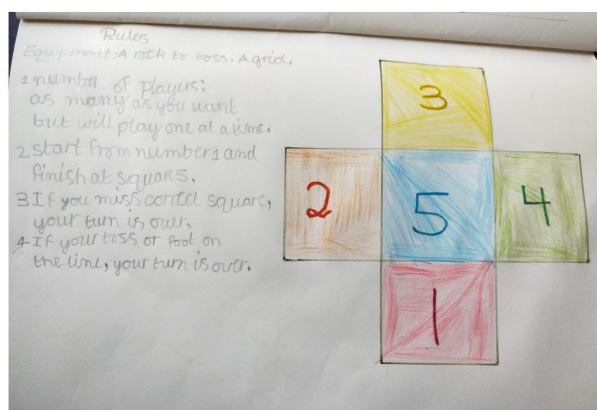 Rules
Equipment: A rock to toss. A grid.
1 number of players:
as many as you want
but will play one at a time.
2 start from number 1 and
finish at square 5.
3 If you miss correct square,
your turn is over.
4 If your toss or foot on
the line, your turn is over.
3
2
5
4
1